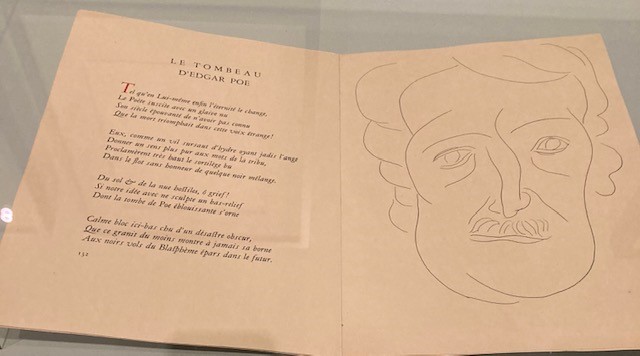 LE TOMBEAU
D'EDGAR POE
Tel qu'en Lui-même enfin l'éternité le change,
Le Poëte suscite avec un glaive nu
Son siècle épouvanté de n'avoir pas connu
Que la mort triomphait dans cette voix étrange!
Eux, comme un vil sursaut d'hydre oyant jadis l'ange
Donner un sens plus pur aux mots de la tribu,
Proclamèrent très haut le sortilège bu
Dans le flot sans honneur de quelque noir mélange.
Du sol & de la nue hostiles, ô grief!
Si notre idée avec ne sculpte un bas-relief
Dont la tombe de Poe éblouissante s'orne
Calme bloc ici-bas chu d'un désastre obscur,
Que ce granit du moins montre à jamais sa borne
Aux noirs vols du Blasphème épars dans le futur.
132